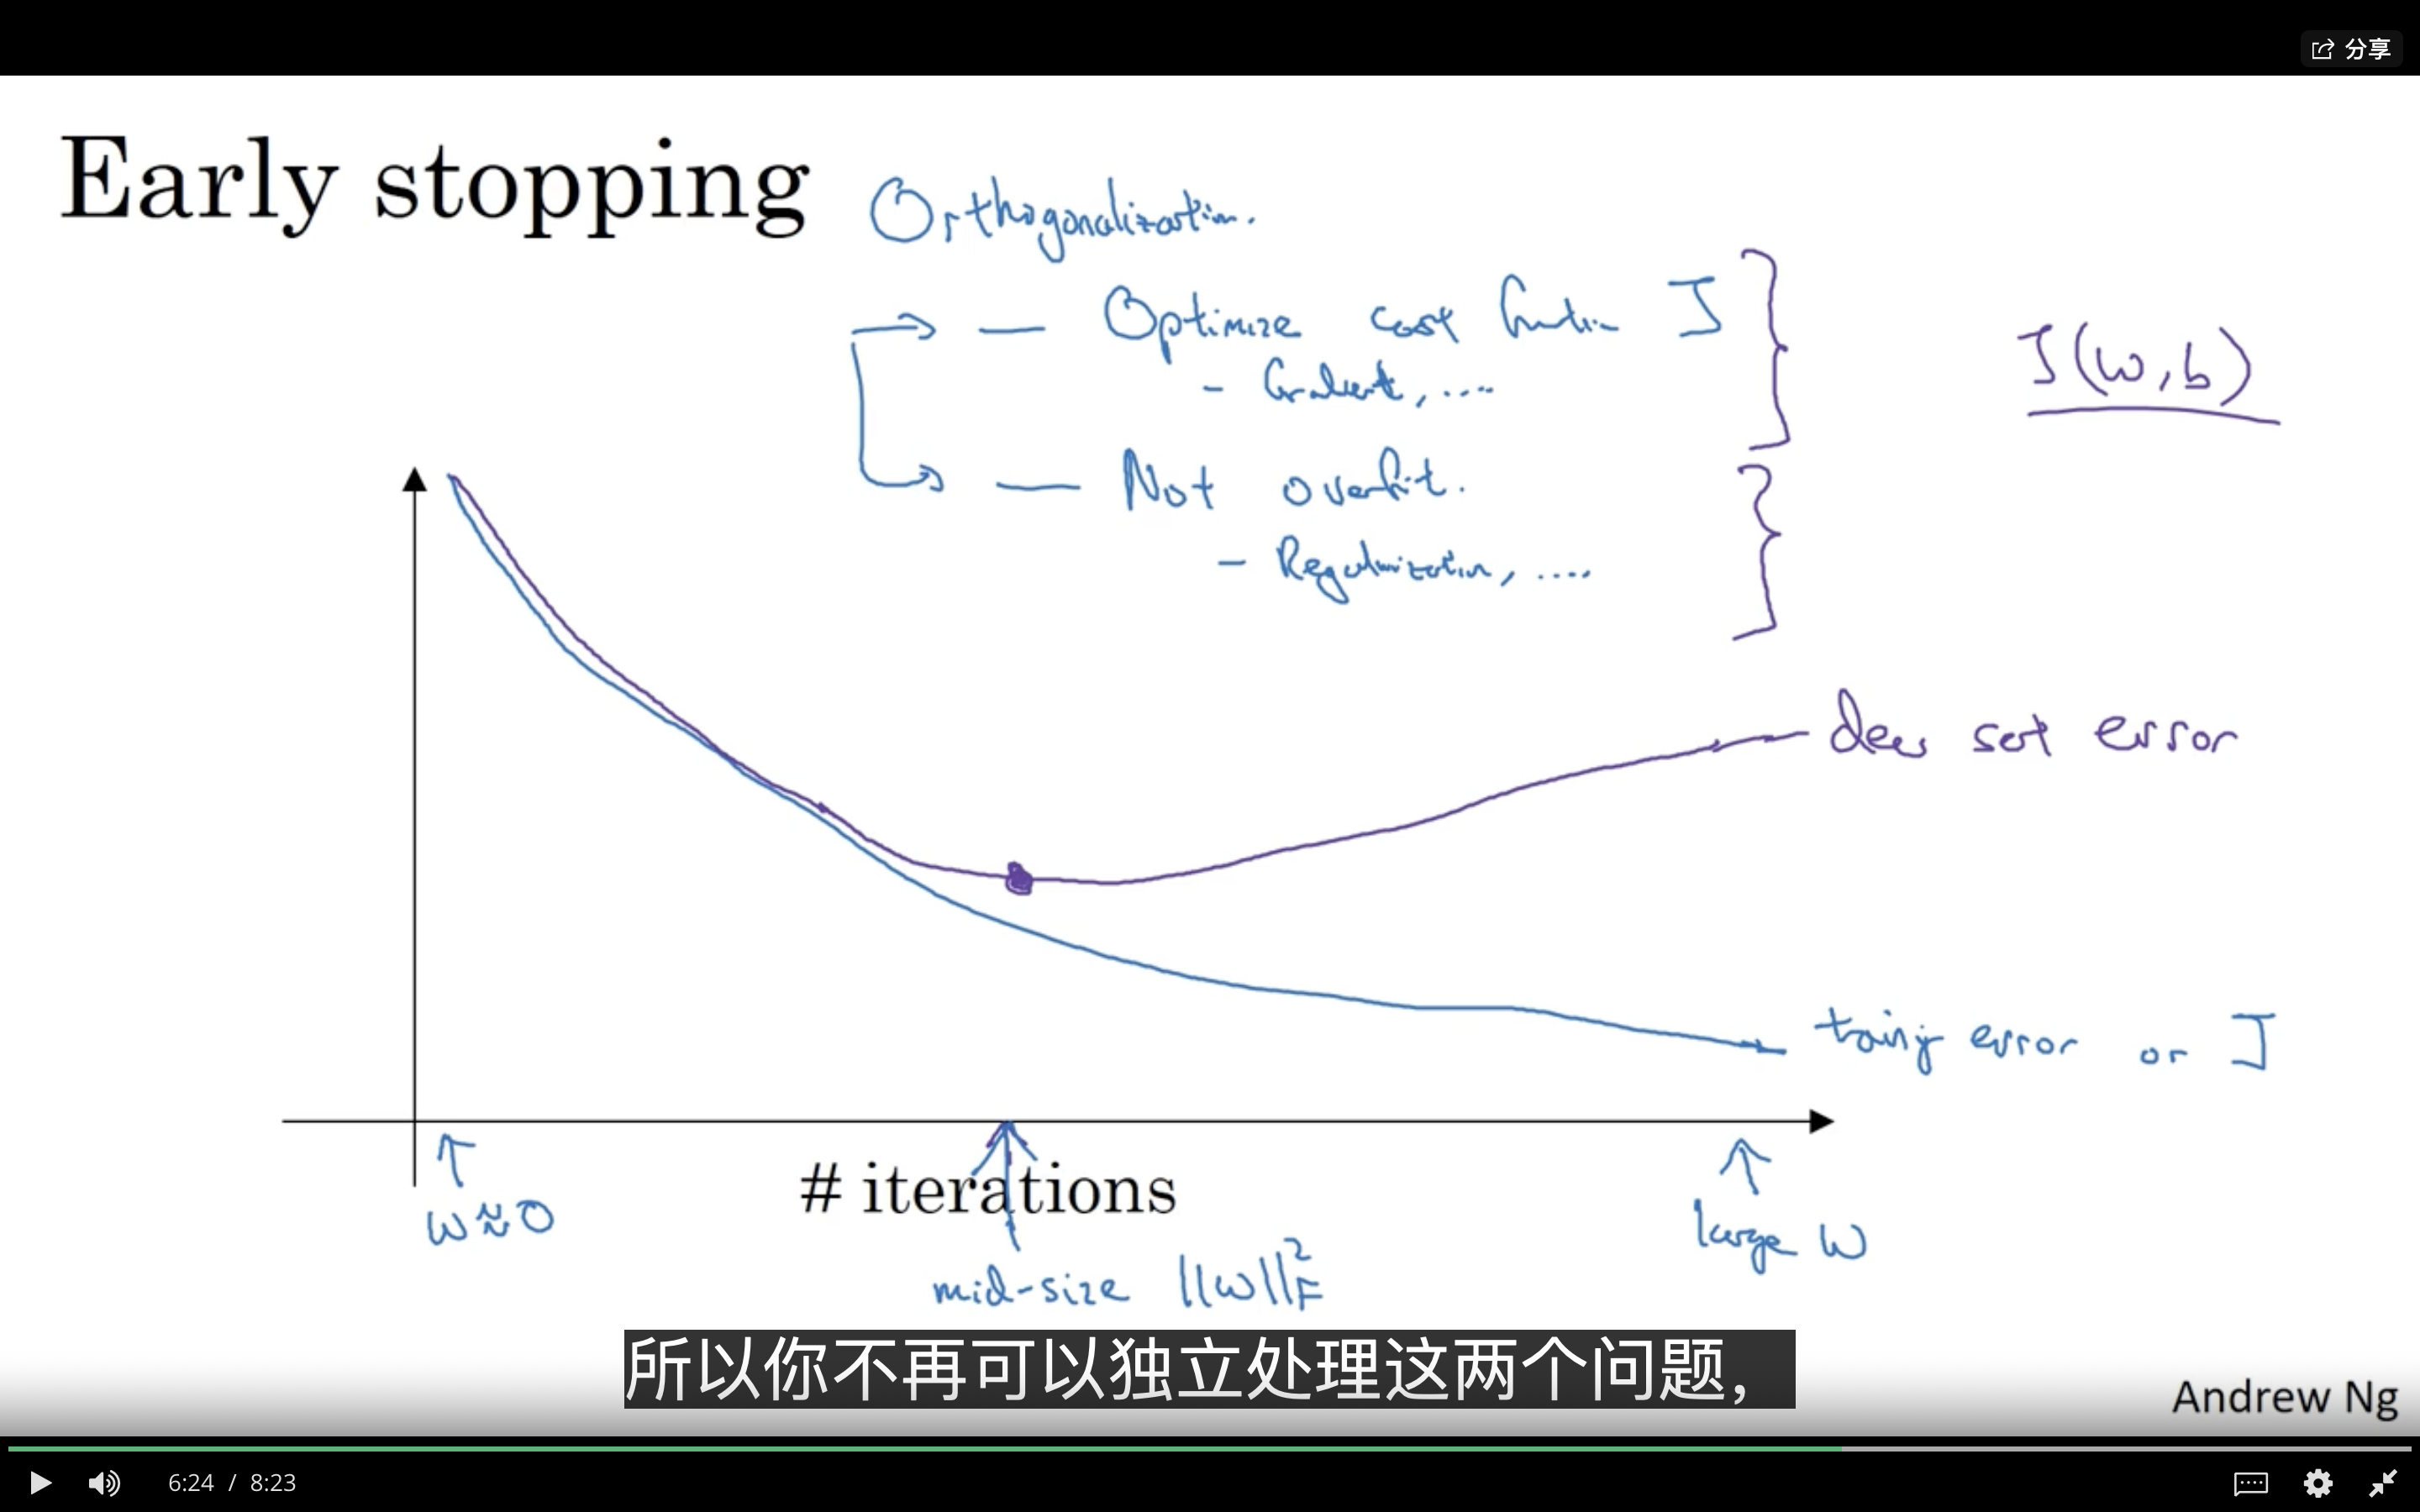 分享
Early stopping
Orthogonalization.
— Optimize cost function J
- Gradient, ....
J(w,b)
— Not overfit.
- Regularization, ....
dev set error
training error or J
# iterations
w≈0
large w
mid-size ||w||²_F
所以你不再可以独立处理这两个问题，
Andrew Ng
6:24 / 8:23